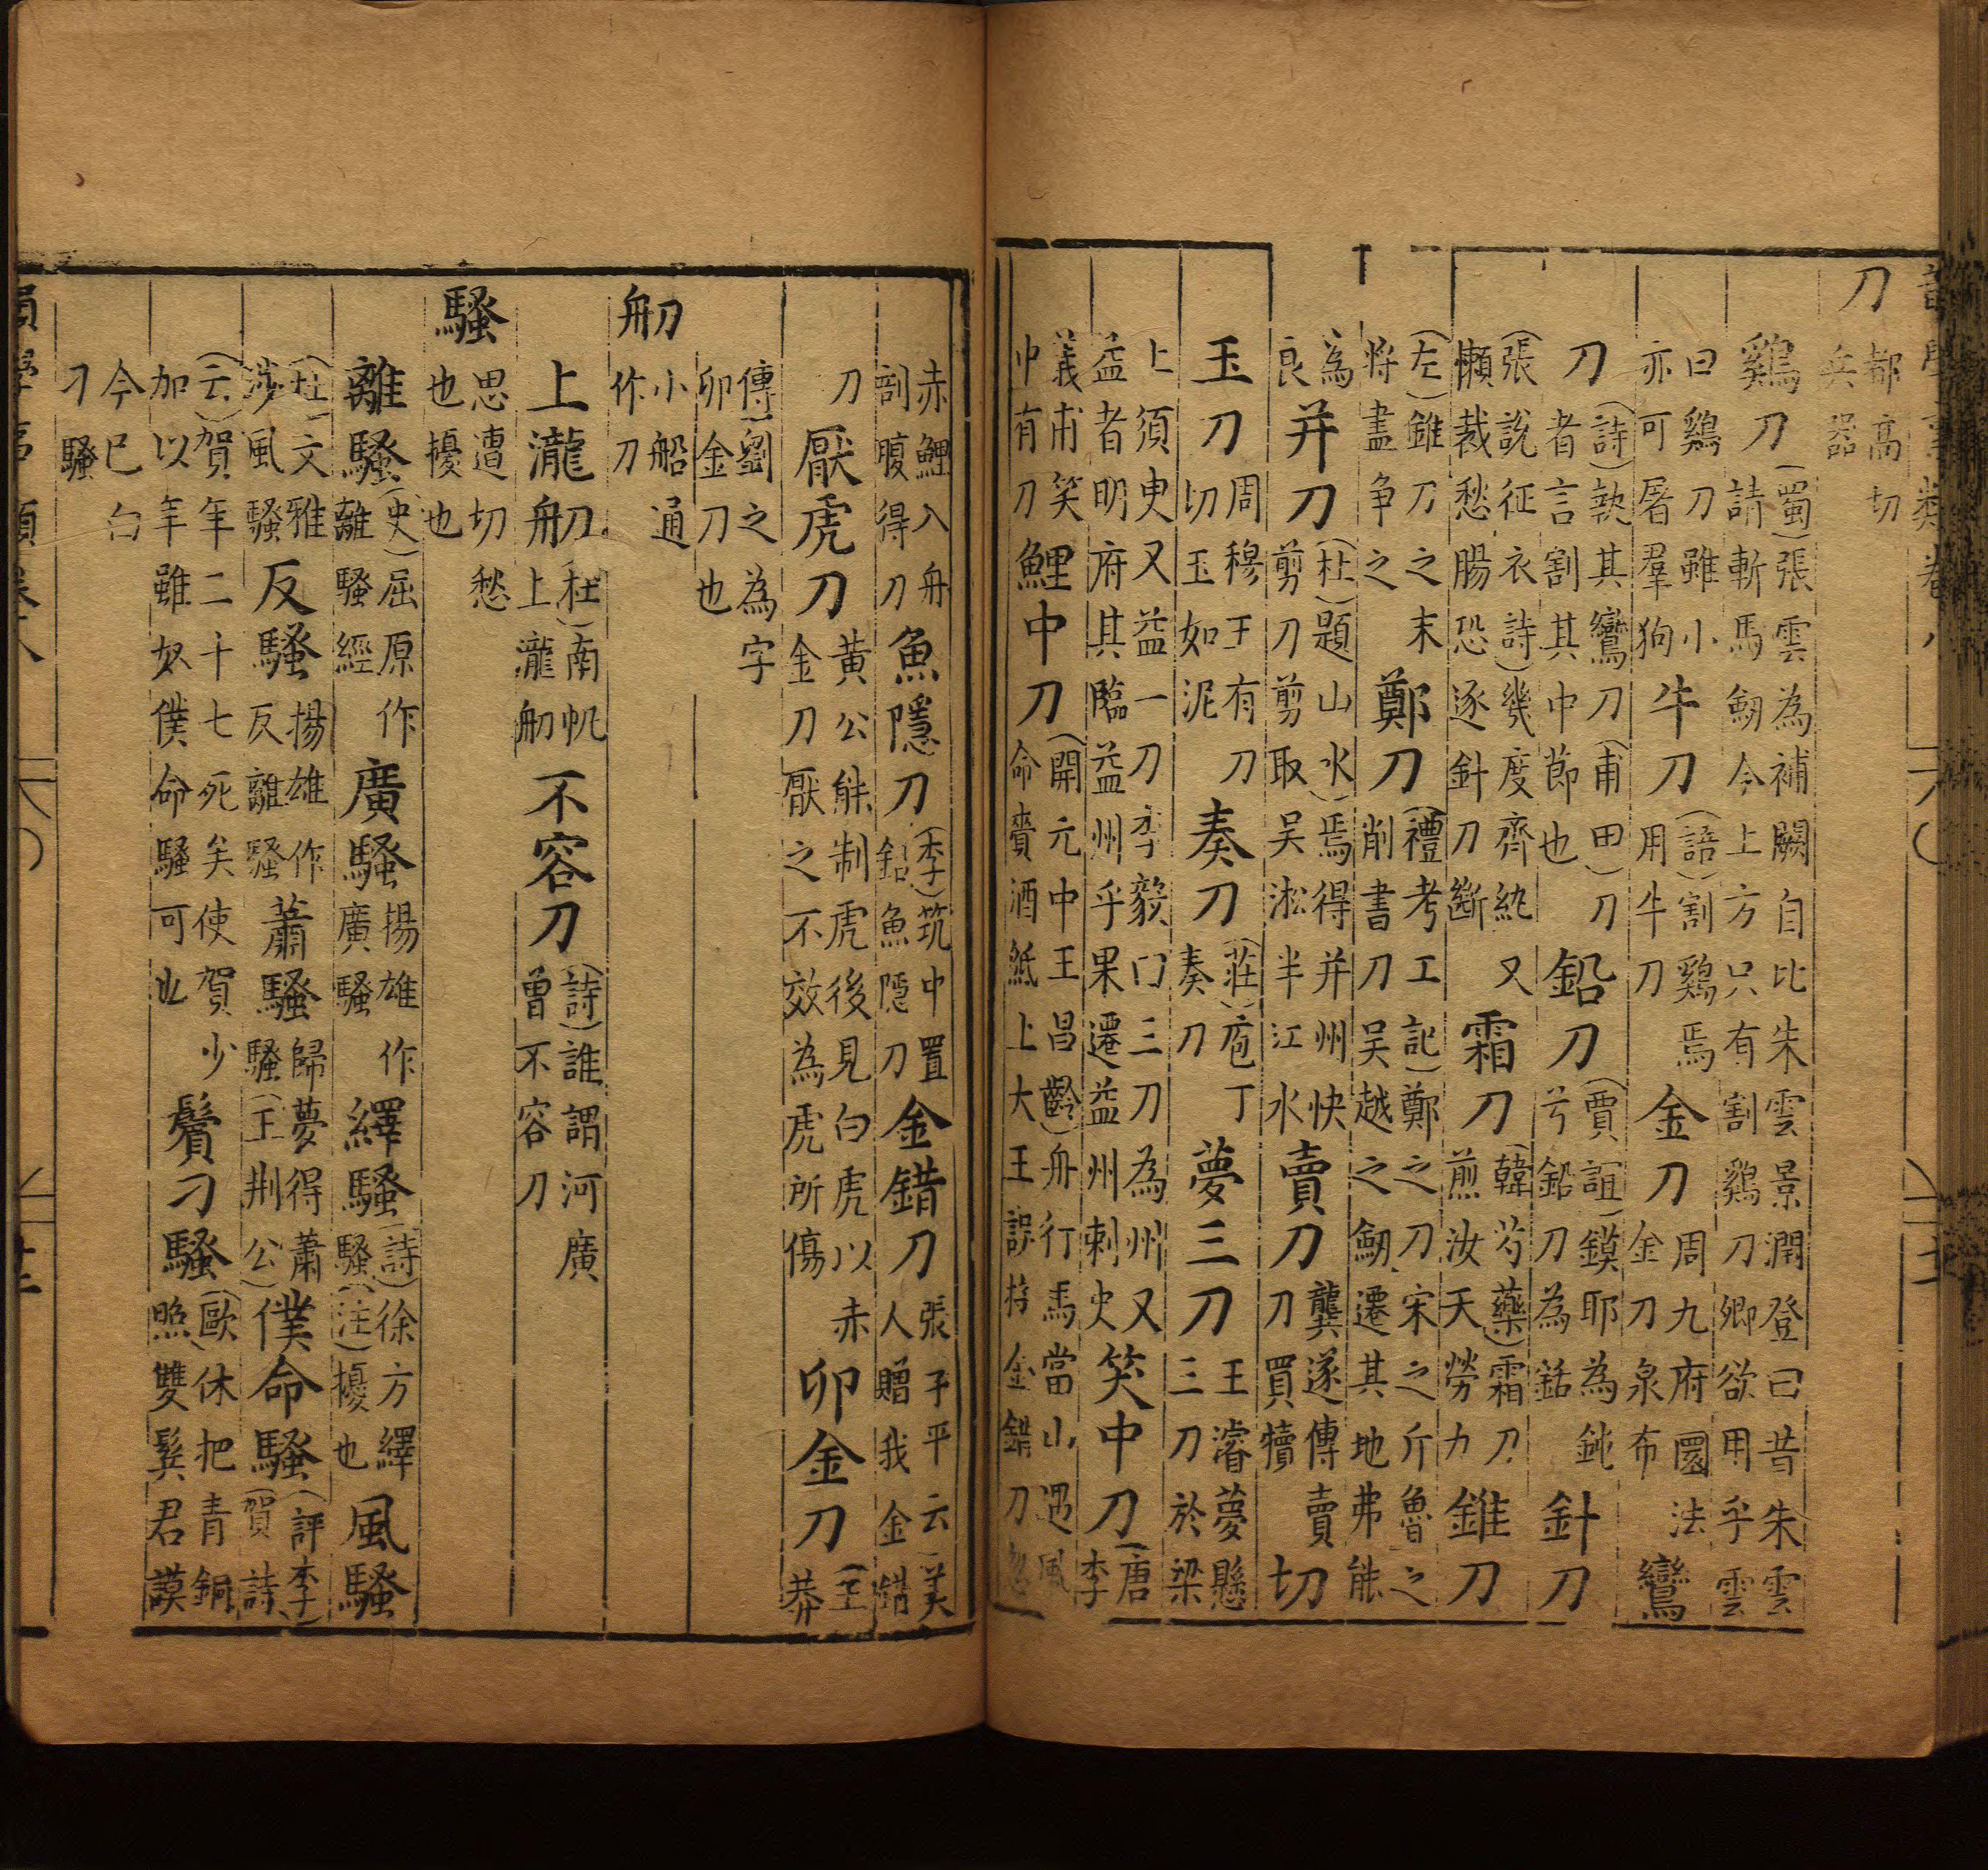 刀 都高切兵器
雞刀(蜀)張雲為補闕自比朱雲景潤登曰昔朱雲請斬馬劒今上方只有割雞刀卿欲用乎雲
曰雞刀雖小亦可屠羣狗 牛刀(語)割雞焉用牛刀 金刀 周九府圜法金刀泉布 鸞
刀(詩)執其鸞刀(甫田)刀者言割其中節也 鉛刀(賈誼)鏌耶為鈍兮鉛刀為銛 針刀
(張說征衣詩)幾度齊紈又懶裁愁腸恐逐針刀斷 霜刀(韓芍藥)霜刀煎汝天勞力 錐刀
(左)錐刀之末將盡争之 鄭刀(禮考工記)鄭之刀宋之斤魯之削書刀吴越之劒遷其地弗能
為良 并刀(杜)題山水)焉得并州快剪刀剪取吴淞半江水 賣刀 龔遂傳賣刀買犢 切
玉刀 周穆王有刀切玉如泥 奏刀(莊)庖丁奏刀 夢三刀 王濬夢懸三刀於梁
上須臾又益一刀李毅门三刀為州又益者明府其臨益州乎果遷益州刺史 笑中刀(唐李
義甫笑中有刀 鯉中刀(開元中王昌齡)舟行馬當山遇風命賚酒紙上大王誤持金錯刀
赤鯉入舟剖腹得刀 魚隱刀(李)筑中置鉛魚隱刀 金錯刀 張子平云(美人贈我金錯
刀 厭虎刀 黃公能制虎後見白虎以赤金刀厭之不效為虎所傷 卯金刀(王莽
傳)劉之為字卯金刀也
舠 小船通作刀
上瀧舠(杜)南帆上瀧舠 不容刀(詩)誰謂河廣曾不容刀
騷 思遭切愁也擾也
離騷(史)屈原作離騷經 廣騷 揚雄作廣騷 繹騷(詩)徐方繹騷(注)擾也 風騷
(杜)文雅涉風騷 反騷 揚雄作反離騷 蕭騷 歸夢得蕭騷(王荆公) 僕命騷(評李賀詩
云)賀年二十七死矣使賀少加以年雖奴僕命騷可也 鬢刁騷(歐)休把青銅照雙鬓君謨
今已白刁騷